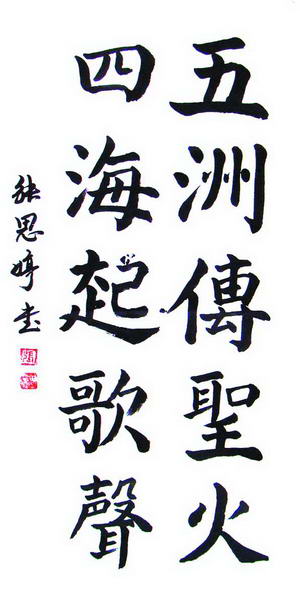 五洲傳聖火
四海起歌聲
張思婷書